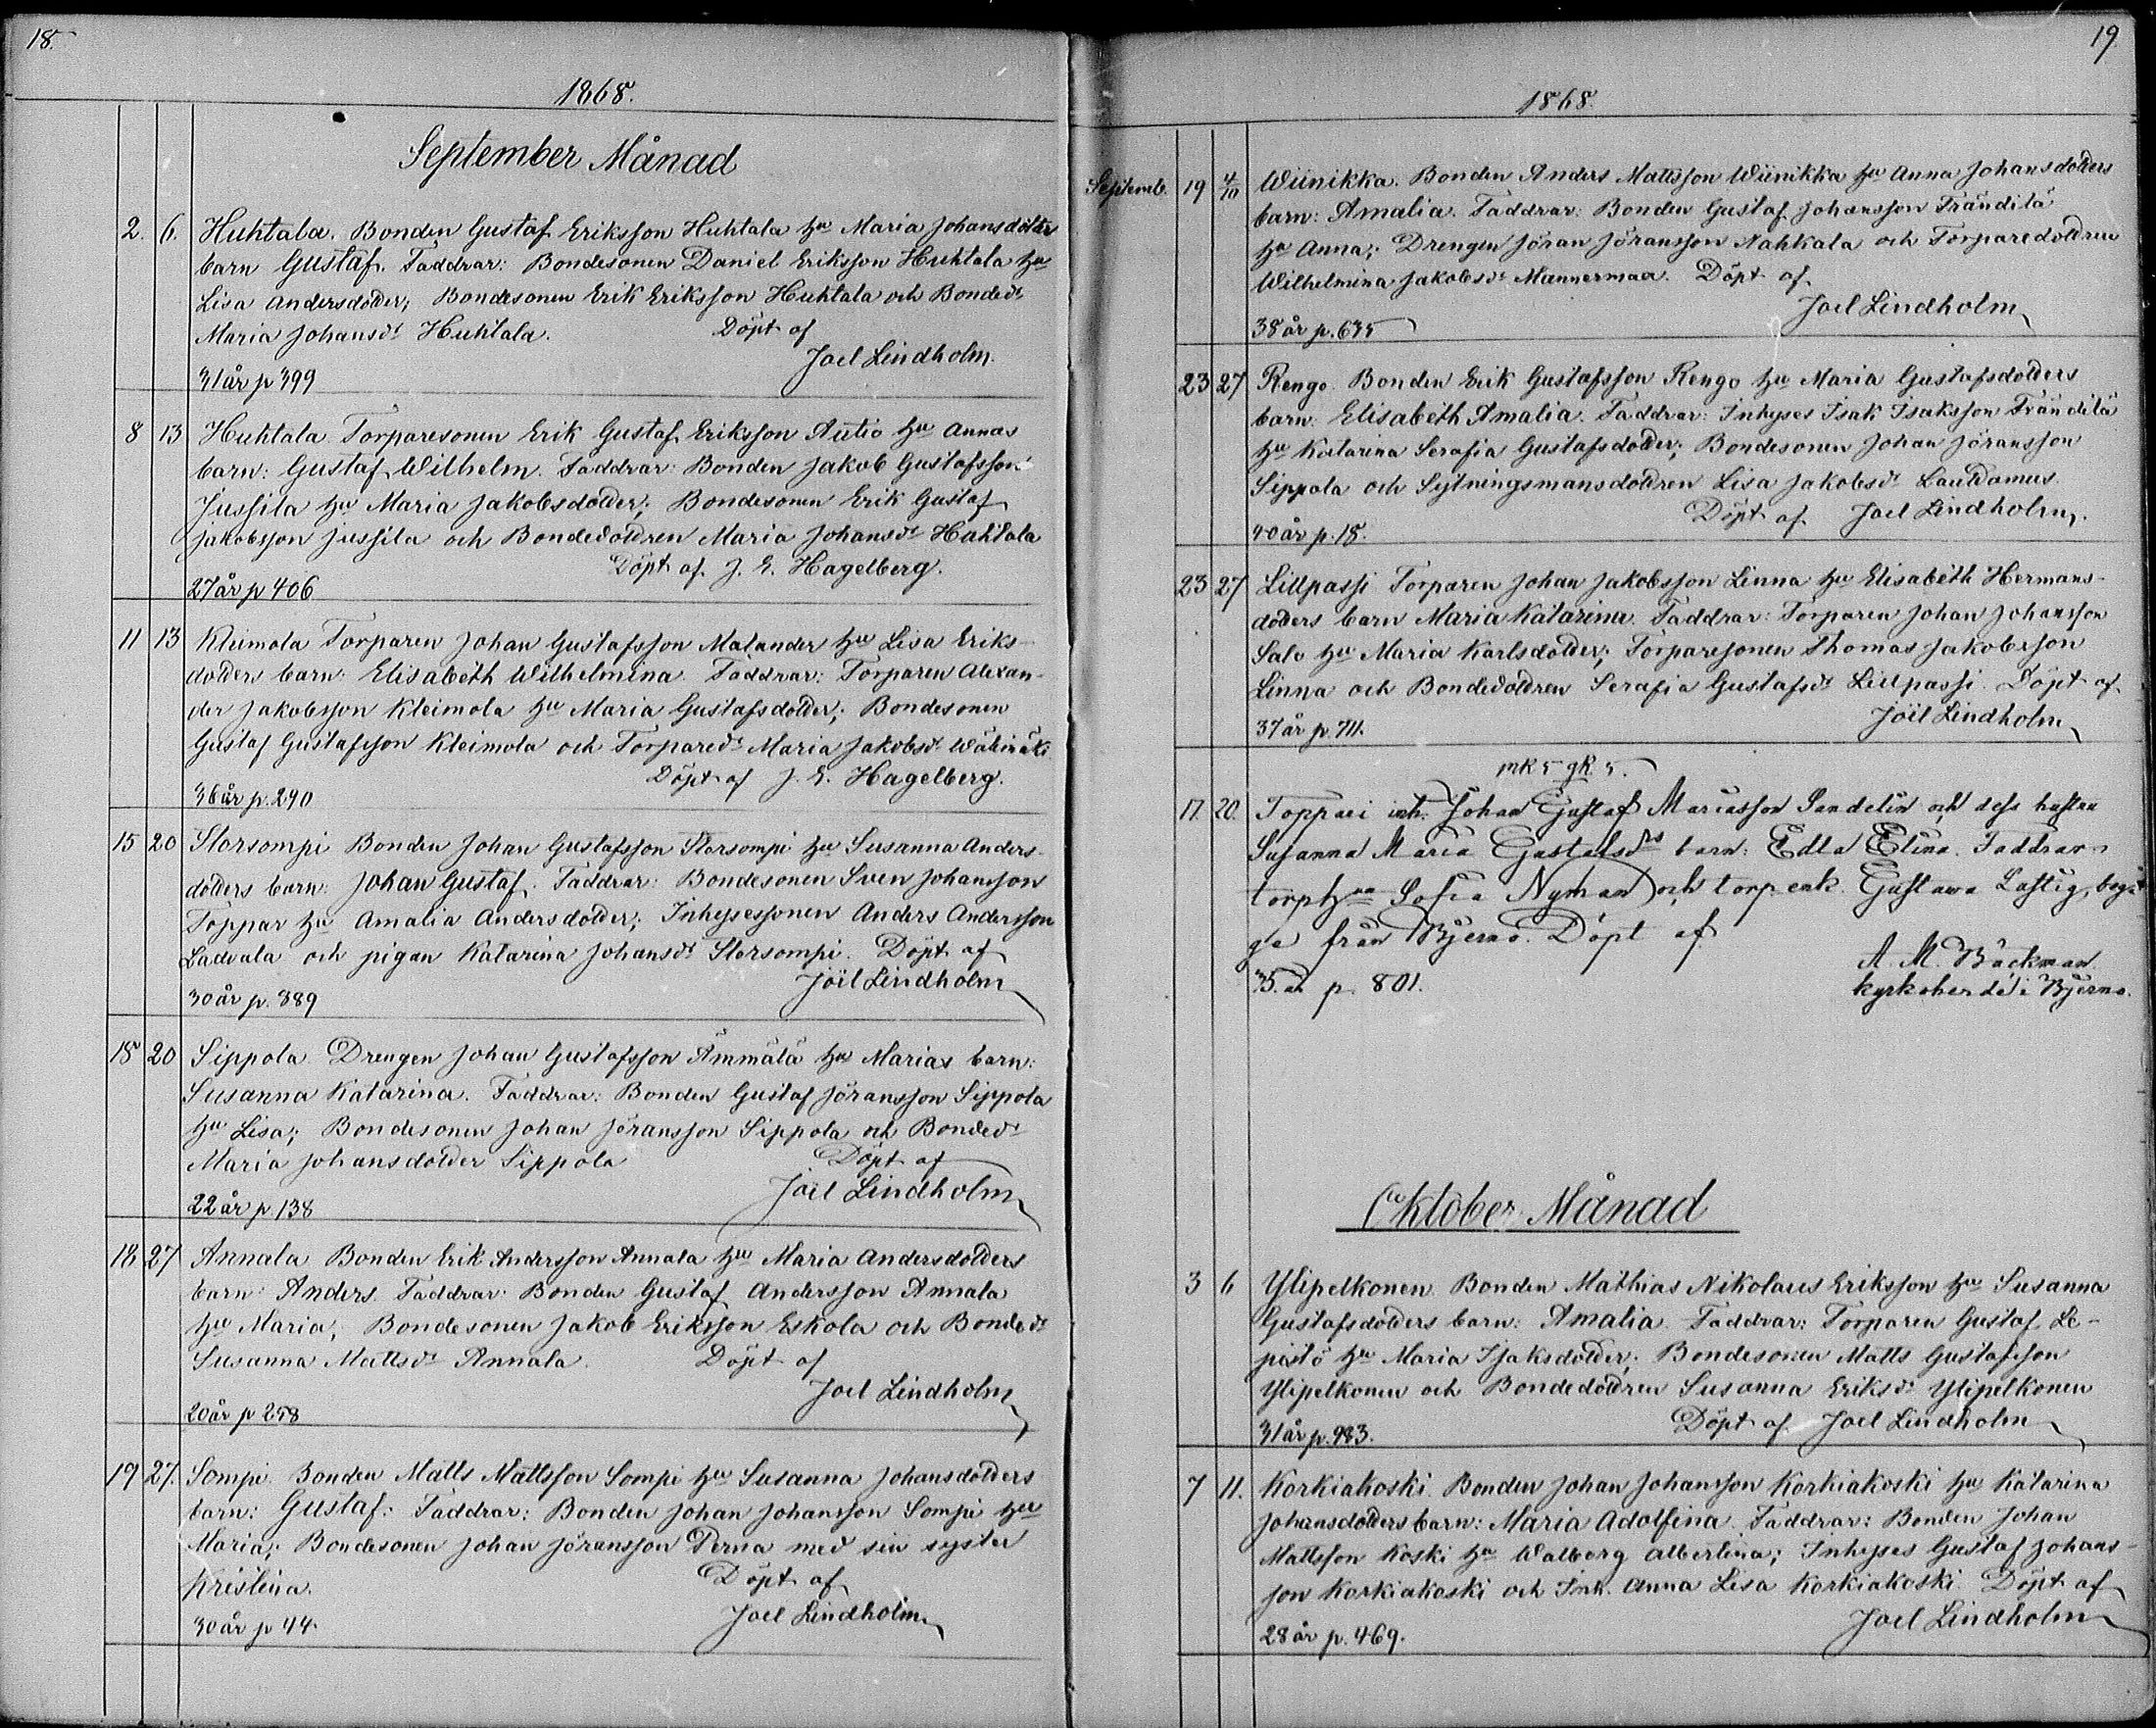 18.
1868.
September Månad
2. 6. Huhtala. Bonden Gustaf Eriksson Huhtala hu Maria Johansdotters
barn Gustaf. Faddrar: Bondesonen Daniel Eriksson Huhtala hu
Lisa Andersdotter; Bondesonen Erik Eriksson Huhtala och Bondedr
Maria Johansdr Huhtala. Döpt af
Joel Lindholm.
31 år p 399
8 13 Huhtala Torparesonen Erik Gustaf Eriksson Autio hu Annas
barn: Gustaf Wilhelm. Faddrar: Bonden Jakob Gustafsson
Jussila hu Maria Jakobsdotter; Bondesonen Erik Gustaf
Jakobsson Jussila och Bondedottren Maria Johansdr Huhtala
Döpt af J. E. Hagelberg.
27 år p 406
11 13 Kleimola Torparen Johan Gustafsson Malander hu Lisa Eriks-
dotters barn: Elisabeth Wilhelmina. Faddrar: Torparen Alexan-
der Jakobsson Kleimola hu Maria Gustafsdotter; Bondesonen
Gustaf Gustafsson Kleimola och Torparedr Maria Jakobsdr
Döpt af J. E. Hagelberg.
36 år p. 290
15 20 Storsompi Bonden Johan Gustafsson Storsompi hu Susanna Anders-
dotters barn: Johan Gustaf. Faddrar: Bondesonen Sven Johansson
Toppar hu Amalia Andersdotter; Inhysessonen Anders Andersson
Ladvala och pigan Katarina Johansdr Storsompi. Döpt af
Joel Lindholm
30 år p. 889
15 20 Sippola Drengen Johan Gustafsson Ämmälä hu Marias barn:
Susanna Katarina. Faddrar: Bonden Gustaf Jöransson Sippola
hu Lisa; Bondesonen Johan Jöransson Sippola och Bondedr
Maria Johansdotter Sippola Döpt af
Joel Lindholm
22 år p 138
18 27 Annala Bonden Erik Andersson Annala hu Maria Andersdotters
barn: Anders. Faddrar: Bonden Gustaf Andersson Annala
hu Maria; Bondesonen Jakob Eriksson Eskola och Bondedr
Susanna Mattsdr Annala. Döpt af
Joel Lindholm
20 år p 258
19 27. Sompi. Bonden Matts Mattsson Sompi hu Susanna Johansdotters
barn: Gustaf: Faddrar: Bonden Johan Johansson Sompi hu
Maria; Bondesonen Johan Jöransson Perna med sin syster
Kristina. Döpt af
Joel Lindholm
30 år p 44.
19
1868
Septemb. 19 4/10 Wiinikka. Bonden Anders Mattsson Wiinikka hu Anna Johansdotters
barn: Amalia. Faddrar: Bonden Gustaf Johansson Frändilä
hu Anna; Drengen Jöran Jöransson Nahkala och Torparedottren
Wilhelmina Jakobsdr Mannermaa. Döpt af
Joel Lindholm
38 år p. 635
23 27 Rengo. Bonden Erik Gustafsson Rengo hu Maria Gustafsdotters
barn: Elisabeth Amalia. Faddrar: Inhyses Isak Isaksson Frändilä
hu Katarina Serafia Gustafsdotter; Bondesonen Johan Jöransson
Sippola och Sytningsmansdottren Lisa Jakobsdr Lautamus.
Döpt af Joel Lindholm
40 år p. 18.
23 27 Lillpassi Torparen Johan Jakobsson Linna hu Elisabeth Hermans-
dotters barn Maria Katarina. Faddrar: Torparen Johan Johansson
Salo hu Maria Karlsdotter; Torparesonen Thomas Jakobsson
Linna och Bondedottren Serafia Gustafsdr Lillpassi. Döpt af
Joel Lindholm
37 år p. 711.
mk 5 gk. 5.
17. 20. Toppari inh. Johan Gustaf Mariasson Sandelin och dess hustru
Susanna Maria Gustafsdrs barn: Edla Elina. Faddrar
torphu Sofia Nyman och torp.enk. Gustava Lastig, bäg-
ge från Bjerno. Döpt af
A. M. Bäckman
35. år p. 801. kyrkoherde i Bjerno.
Oktober Månad
3 6 Ylipelkonen Bonden Mathias Nikolaus Eriksson hu Susanna
Gustafsdotters barn: Amalia. Faddrar: Torparen Gustaf Le-
pistö hu Maria Isaksdotter; Bondesonen Matts Gustafsson
Ylipelkonen och Bondedottren Susanna Eriksdr Ylipelkonen
Döpt af Joel Lindholm
31 år p. 983.
7 11. Korkiakoski. Bonden Johan Johansson Korkiakoski hu Katarina
Johansdotters barn: Maria Adolfina. Faddrar: Bonden Johan
Mattsson Koski hu Walborg Albertina; Inhyses Gustaf Johans-
son Korkiakoski och Inh. Anna Lisa Korkiakoski Döpt af
Joel Lindholm
28 år p. 469.